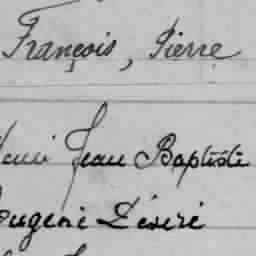 François, Pierre
Jean Baptiste
Eugène Désiré